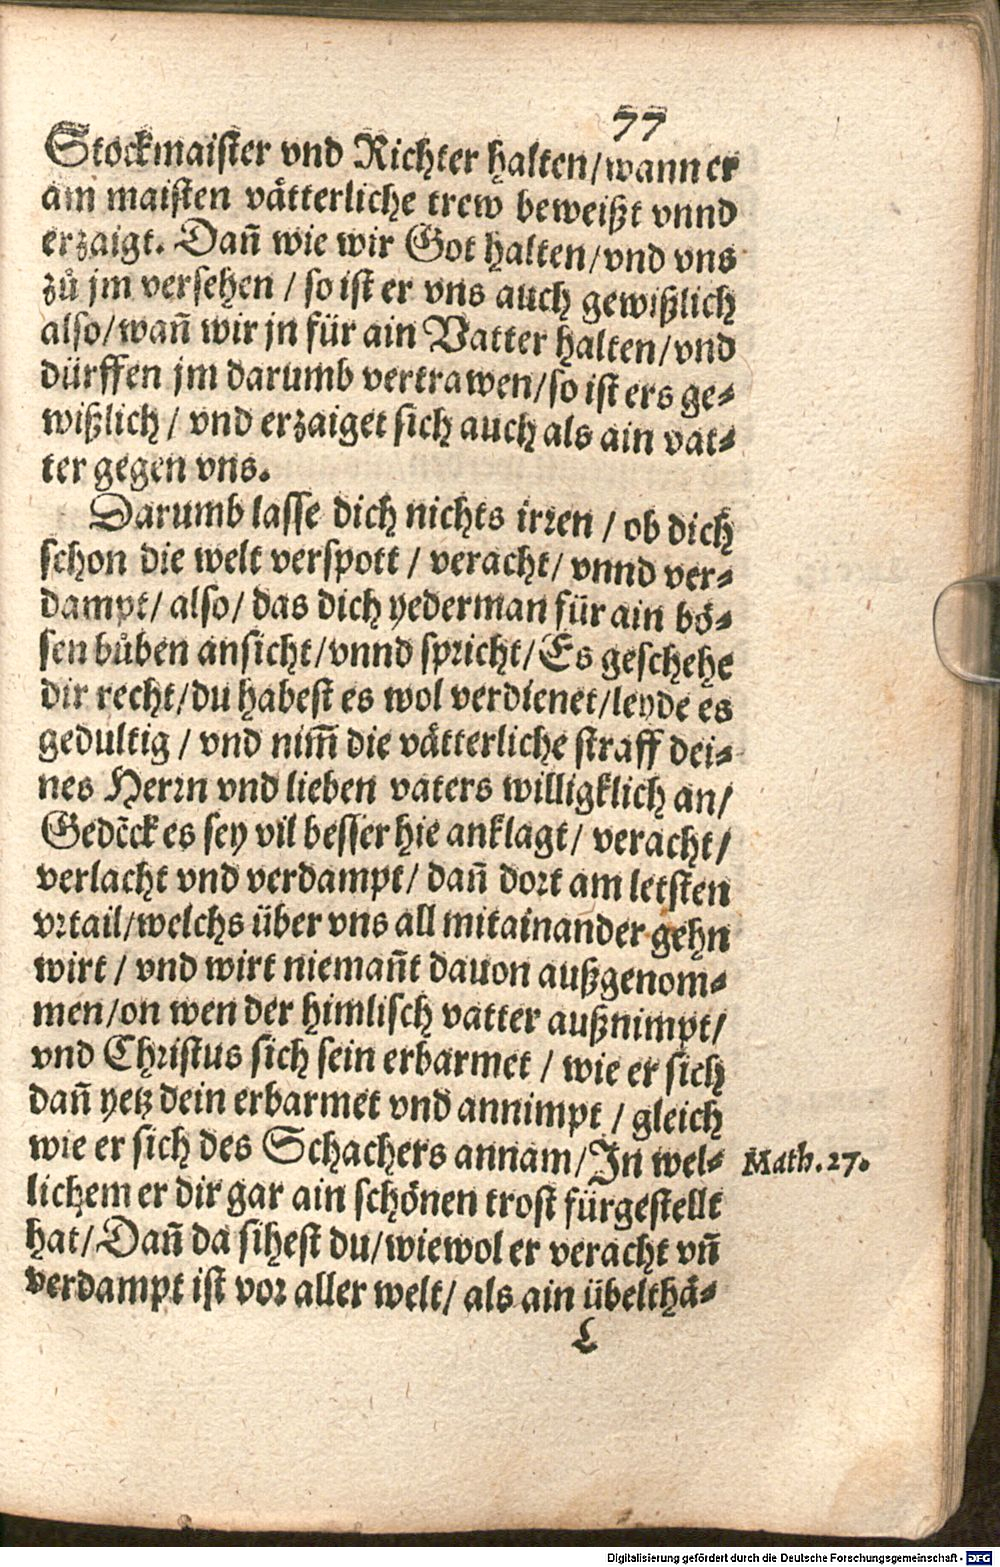 77
Stockmaister vnd Richter halten/wann er
am maisten vätterliche trew beweißt vnnd
erzaigt. Dañ wie wir Got halten/vnd vns
zů jm versehen / so ist er vns auch gewißlich
also/wañ wir jn für ain Vatter halten/vnd
dürffen jm darumb vertrawen/so ist ers ge-
wißlich / vnd erzaiget sich auch als ain vat-
ter gegen vns.
Darumb lasse dich nichts irren / ob dich
schon die welt verspott / veracht/ vnnd ver-
dampt/ also/ das dich yederman für ain bö-
sen bůben ansicht/vnnd spricht/Es geschehe
dir recht/du habest es wol verdienet/leyde es
gedultig / vnd nim̃ die vätterliche straff dei-
nes Herrn vnd lieben vaters willigklich an/
Gedẽck es sey vil besser hie anklagt/ veracht/
verlacht vnd verdampt/ dañ dort am letsten
vrtail/welchs über vns all mitainander gehn
wirt / vnd wirt niemañt dauon außgenom-
men/on wen der himlisch vatter außnimpt/
vnd Christus sich sein erbarmet / wie er sich
dañ yetz dein erbarmet vnd annimpt / gleich
wie er sich des Schachers annam/In wel-
Math. 27.
lichem er dir gar ain schönen trost fürgestellt
hat/Dañ da sihest du/wiewol er veracht vñ
verdampt ist vor aller welt/ als ain übelthä-
L
Digitalisierung gefördert durch die Deutsche Forschungsgemeinschaft - DFG